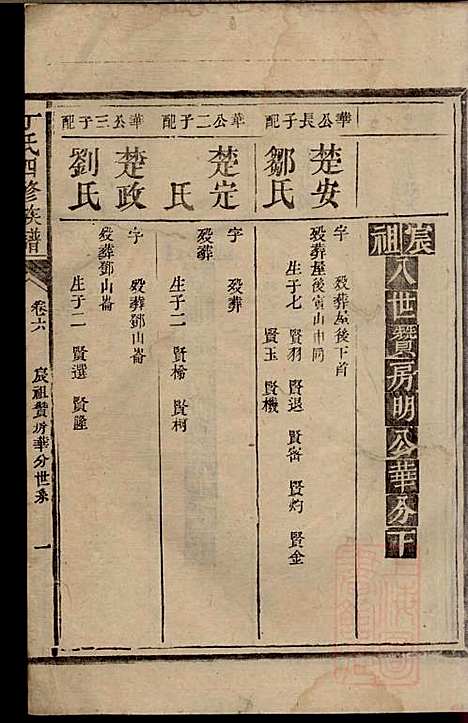 宸祖八世贊房明公華分下
華公長子配
楚安
鄒氏
字 歿葬屋後下首
歿葬屋後寅山申向
生子七 賢羽 賢退 賢密 賢灼 賢金
賢玉 賢機
華公二子配
楚定
氏
字 歿葬
歿葬
生子二 賢榆 賢柯
華公三子配
楚政
劉氏
字 歿葬鄧山崙
歿葬鄧山崙
生子二 賢選 賢隆
丁氏四修族譜
卷六
宸祖贊房華分世系
一